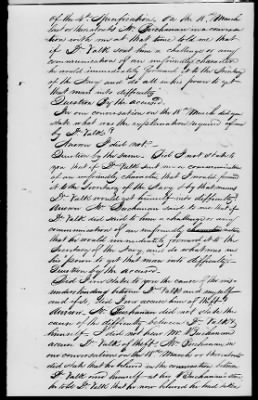 of the 4th Specification. On the 18th March
last or thereabouts Mr. Buchanan in a conversa
tion with me at that time told me that
if Dr Valk sent him a challenge or any
communication of an unfriendly character
he would immediately forward it to the Secretary
of the Navy and do all in his power to get
that man into difficulty.
Question by the accused.
In our conversation on the 18th March did you
state what was the explanation required of me
by Dr Valk?
Answer I did not.
Question by the same. Did I not state to
you that if Dr Valk sent me a communication
of an unfriendly character, that I would forward
it to the Secretary of the Navy & by that means
Dr Valk would get himself into difficulty?
Answer. Mr. Buchanan said to me that if
Dr Valk did send to him a challenge or any
communication of an unfriendly character
that he would immediately forward it to the
Secretary of the Navy, and do what was in
his power to get that man into difficulty.
Question by the accused.
Did I ever state to you the cause of the mis
understanding between Dr Valk and myself
and did I ever accuse him of theft?
Answer. Mr. Buchanan did not state the
cause of the difficulty between Dr Valk &
himself. I did not hear Mr. Buchanan
accuse Dr Valk of theft. Mr. Buchanan in
our conversation on the 18th March or thereabouts
did state that he believed in the conversation
Dr Valk
he told Dr Valk that he now believed he had